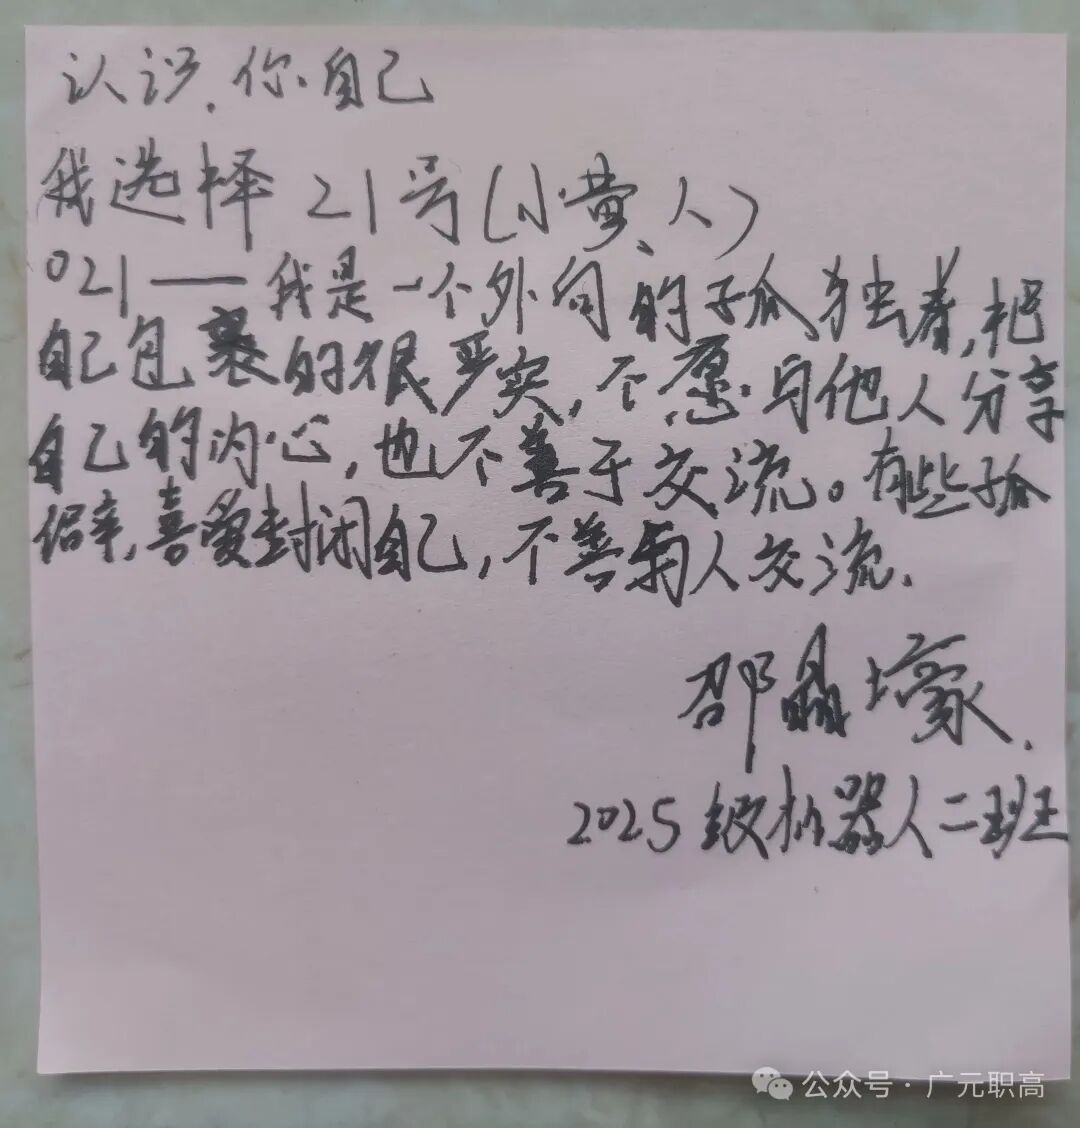 认识你自己
我选择21号(小黄人)
021——我是一个外向的孤独者,把
自己包裹的很严实,不愿与他人分享
自己的内心,也不善于交流。有些孤
僻,喜爱封闭自己,不善与人交流.
邵晶壕.
2025级机器人二班
公众号·广元职高